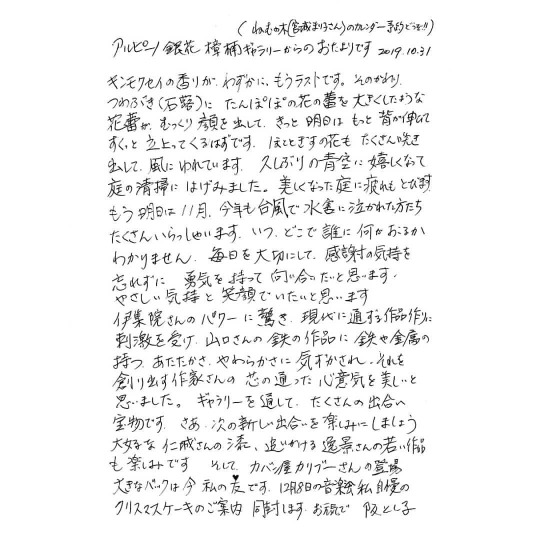 (ねむの木(宮城まり子さん)のカレンダー予約どうぞ!!)
アルピーノ銀花 樟楠ギャラリーからのおたよりです 2019.10.31
キンモクセイの香りが、わずかに、もうラストです。そのかわり
つわぶき(石蕗)に たんぽぽの花の蕾を大きくしたような
花蕾が、むっくり顔を出して、きっと明日は もっと背が伸びて
すくっと立上ってくるはずです。ほととぎすの花も たくさん咲き
出して、風にゆれています。久しぶりの青空に嬉しくなって
庭の清掃に はげみました。美しくなった庭に疲れも とびます
もう明日は11月、今年も台風で水害に泣かれた方たち
たくさんいらっしゃいます、いつ、どこで誰に何がおこるか
わかりません。毎日を大切にして、感謝の気持を
忘れずに 勇気を持って向い合いたいと思います。
やさしい気持と笑顔でいたいと思います
伊集院さんのパワーに驚き、現代に通ずる作品作りに
刺激を受け、山口さんの鉄の作品に 鉄や金属の
持つ、あたたかさ、やわらかさに 気ずかされ、それを
創り出す作家さんの 芯の通った心意気を美しいと
思いました。ギャラリーを通して、たくさんの出合い
宝物です。さあ、次の新しい出合いを楽しみにしましょう
大好きな 仁城さんの漆、追いかける逸景さんの若い作品
も楽しみです そして カバン屋カリブーさんの登場
大きなバックは今 私の友です。12月8日の音楽会、私自慢の
クリスマスケーキのご案内 同封します。お元気で 阪とし子